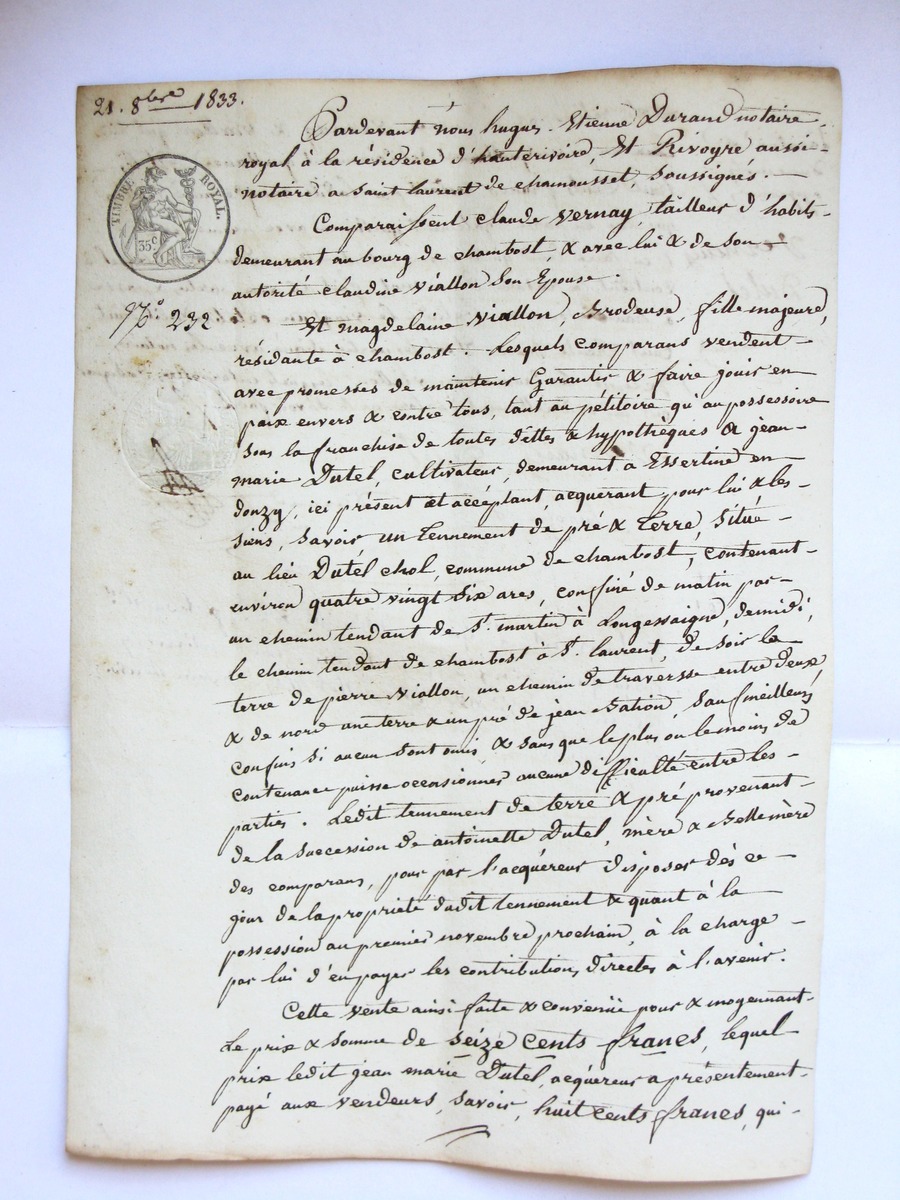 21. 8bre 1833.
Pardevant nous hugues-Etienne Durand notaire
royal à la résidence d'hauterivoire, Et Rivoyre aussi
notaire a Saint Laurent de chamousset, soussignés.
TIMBRE ROYAL.
35c
Comparaissent claude Vernay, tailleur d'habits
demeurant au bourg de chambost, & avec lui & de son
autorité claudine Viallon Son Epouse.
No 232
Et magdelaine Viallon, Brodeuse, fille majeure,
résidante à chambost. Lesquels comparans vendent
avec promesses de maintenir Garantir & faire jouir en
paix envers & contre tous, tant au pétitoire qu'au possessoire
sous la franchise de toutes dettes & hypothèques à jean-
marie Dutel, cultivateur, demeurant a Essertine en
donzy, ici présent et accéptant, acquerant pour lui & les
siens, savoir un Tennement de pré & Terre, situé
au lieu Dutel chol, commune de chambost, contenant
environ quatre vingt six ares, confiné de matin par
un chemin tendant de St. martin à Longessaigne, de midi,
le chemin tendant de chambost à St. laurent, de soir la
terre de pierre Viallon, un chemin de traversse entre deux,
& de nord une terre & un pré de jean Bation, Sauf meilleurs
confins si aucun sont omis, & sans que le plus ou le moins de
contenance puisse occasionner aucune difficulté entre les
parties. Ledit tennement de terre & pré provenant
de la succession de antoinette Dutel, mère & Belle mère
des comparans, pour par l'acquéreur disposer dès ce
jour de la propriété dudit tennement & quant à la
possession au premier novembre prochain, à la charge
par lui d'en payer les contributions directes à l'avenir.
Cette vente ainsi faite & convenüe pour & moyennant
Le prix & somme de seize cents francs, lequel
prix ledit jean marie Dutel, acquéreur a présentement
payé aux vendeurs, savoir, huit cents francs, qui